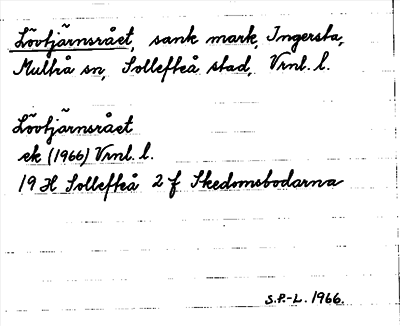 Lövtjärnsrået, sank mark, Ingersta,
Multrå sn, Sollefteå stad, Vrnl. l.
Lövtjärnsrået
ek (1966) Vrnl. l.
19 H Sollefteå 2 f Skedomsbodarna
S.P.-L. 1966.